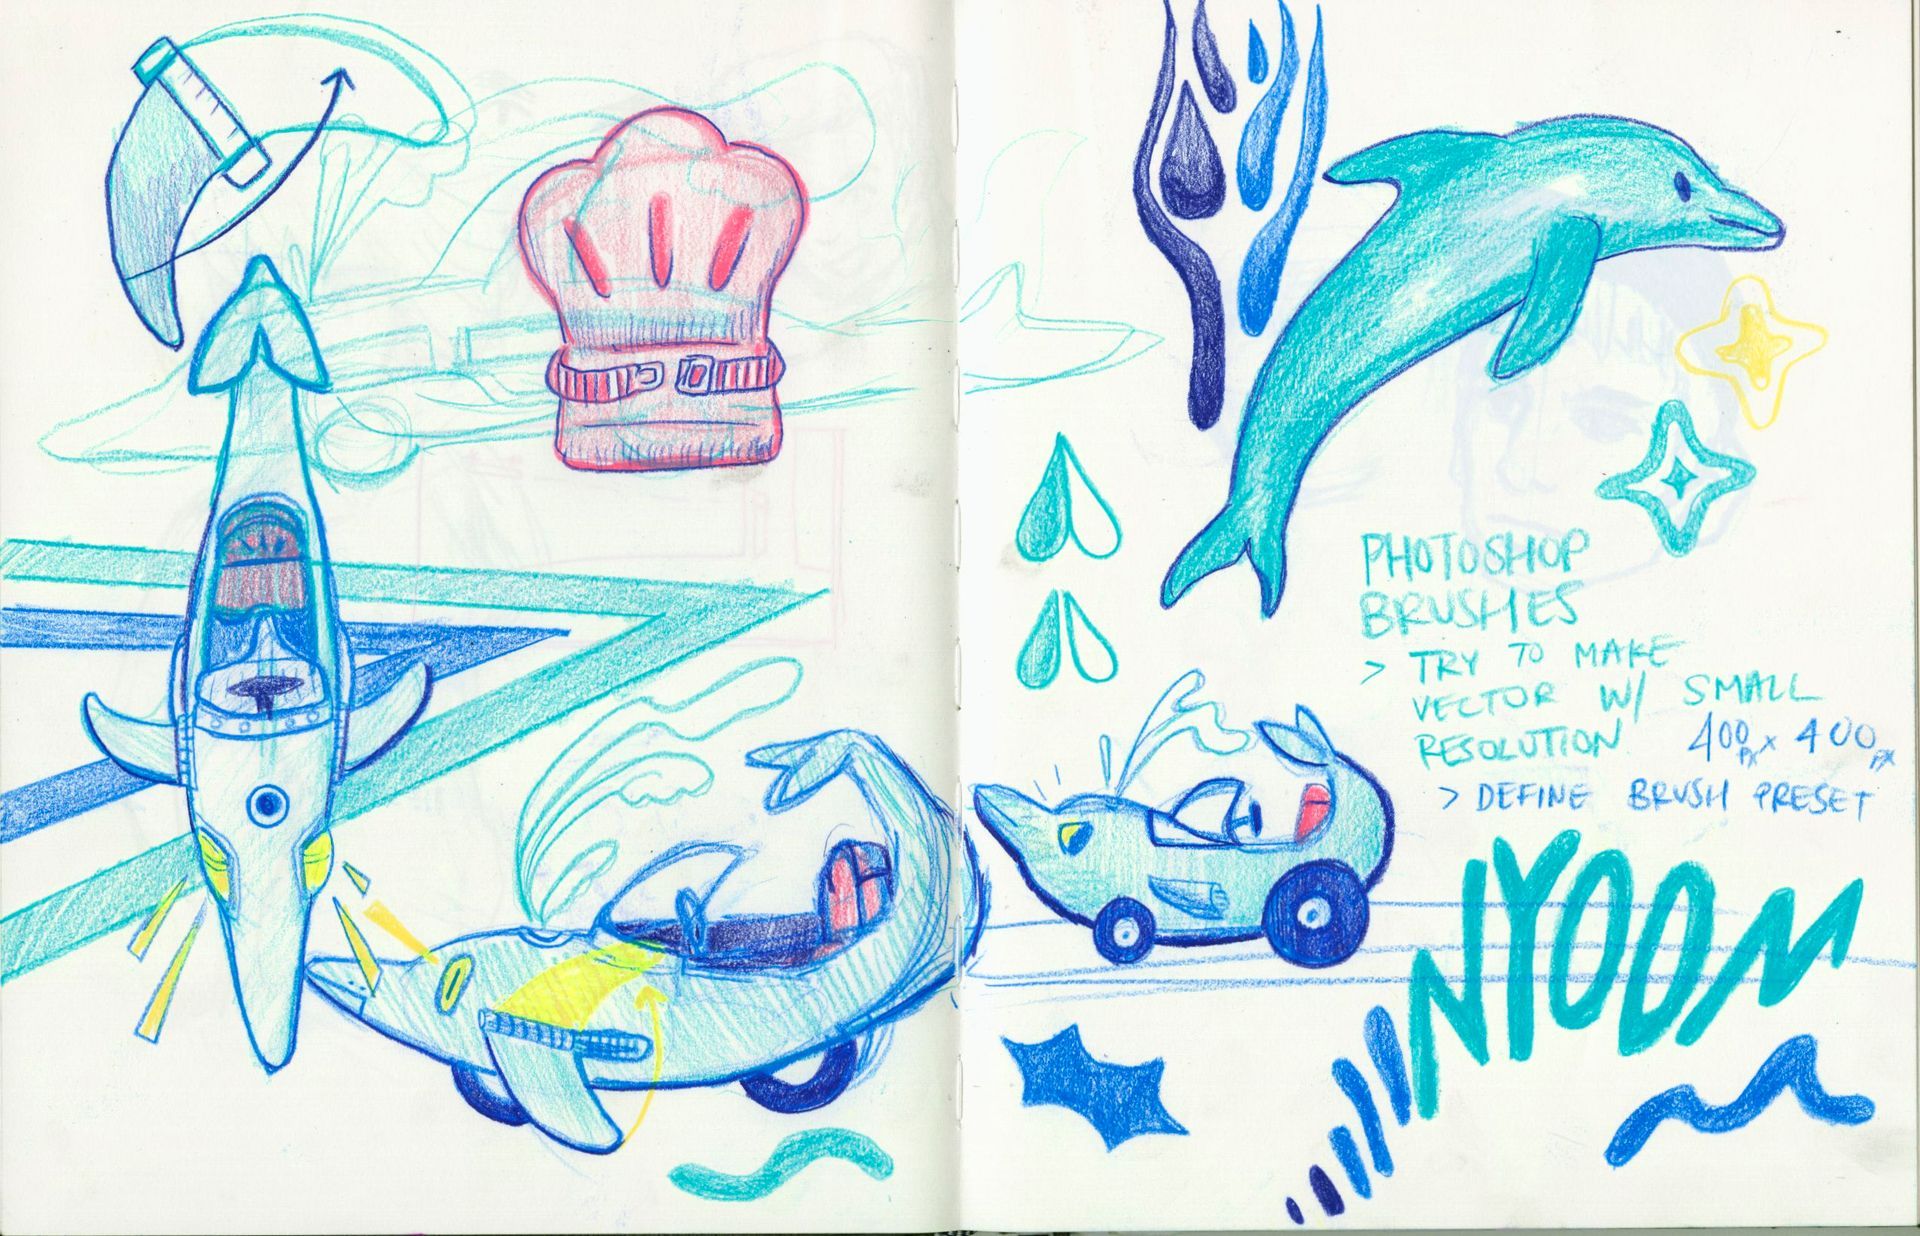 PHOTOSHOP
BRUSHES
> TRY TO MAKE
VECTOR W/ SMALL
RESOLUTION 400px x 400px
> DEFINE BRUSH PRESET
NYOOM